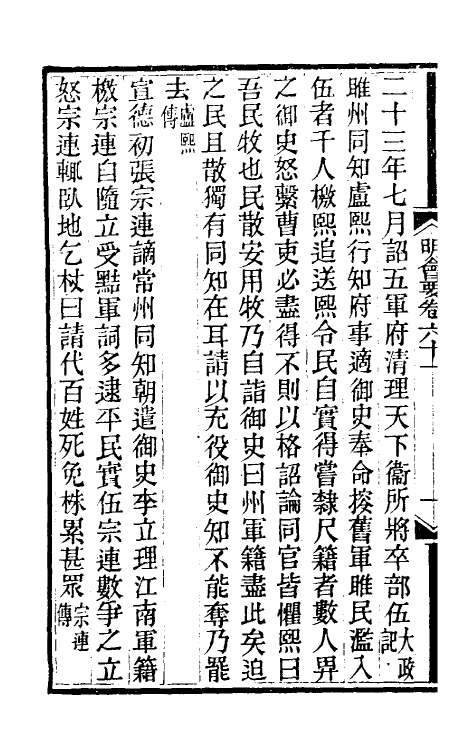 明會要卷六十一
二十三年七月詔五軍府清理天下衞所將卒部伍大政記
睢州同知盧熙行知府事適御史奉命搜舊軍睢民濫入
伍者千人檄熙追送熙令民自實得嘗隸尺籍者數人畀
之御史怒繫曹吏必盡得不則以格詔論同官皆懼熙曰
吾民牧也民散安用牧乃自詣御史曰州軍籍盡此矣迫
之民且散獨有同知在耳請以充役御史知不能奪乃罷
去盧熙傳
宣德初張宗連謫常州同知朝遣御史李立理江南軍籍
檄宗連自隨立受黠軍詞多逮平民實伍宗連數爭之立
怒宗連輒臥地乞杖曰請代百姓死免株累甚眾宗連傳